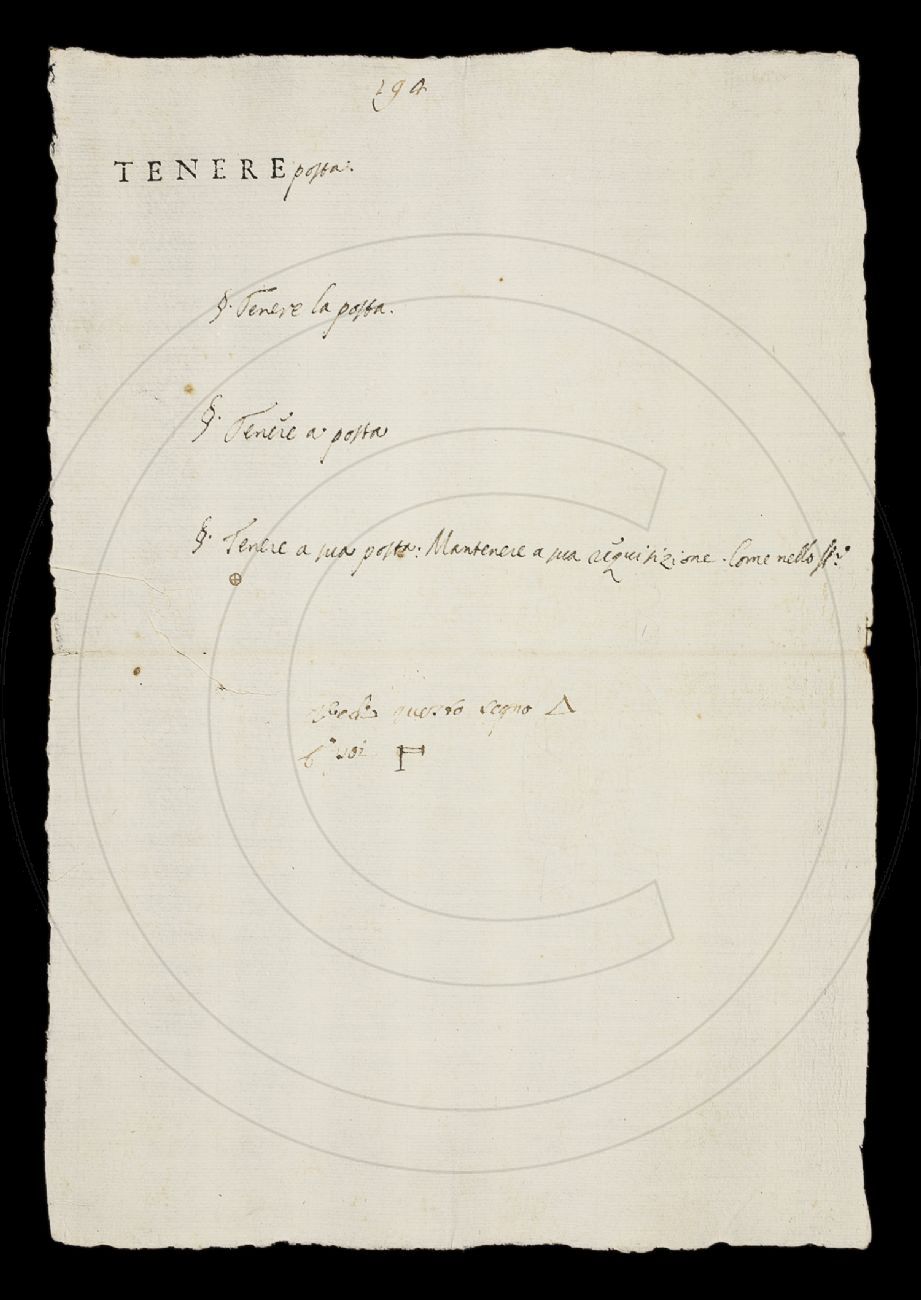 TENERE posta.
§. Tenere la posta.
§. Tenere a posta
§. Tenere a sua posta: Mantenere a sua requisizione. Come nello
questo segno Δ